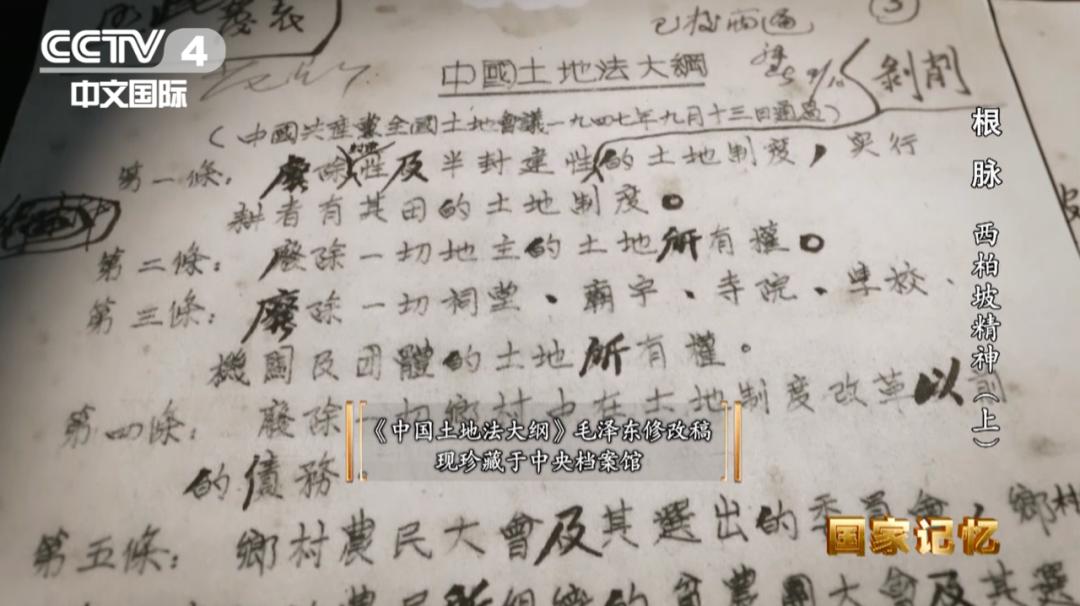 CCTV 4
中文国际
3
中國土地法大綱
剝削
(中國共產黨全國土地會議一九四七年九月十三日通過)
第一條：廢除封建性及半封建性的土地制度，實行
耕者有其田的土地制度。
第二條：廢除一切地主的土地所有權。
第三條：廢除一切祠堂、廟宇、寺院、學校、
機關及团體的土地所有權。
第四條：廢除一切鄉村中在土地制度改革以前
的債務。
第五條：鄉村農民大會及其選出的委員會，鄉村
農民所組織的貧農團大會及其選
《中国土地法大纲》毛泽东修改稿
现珍藏于中央档案馆
根脉 西柏坡精神（上）
国家记忆